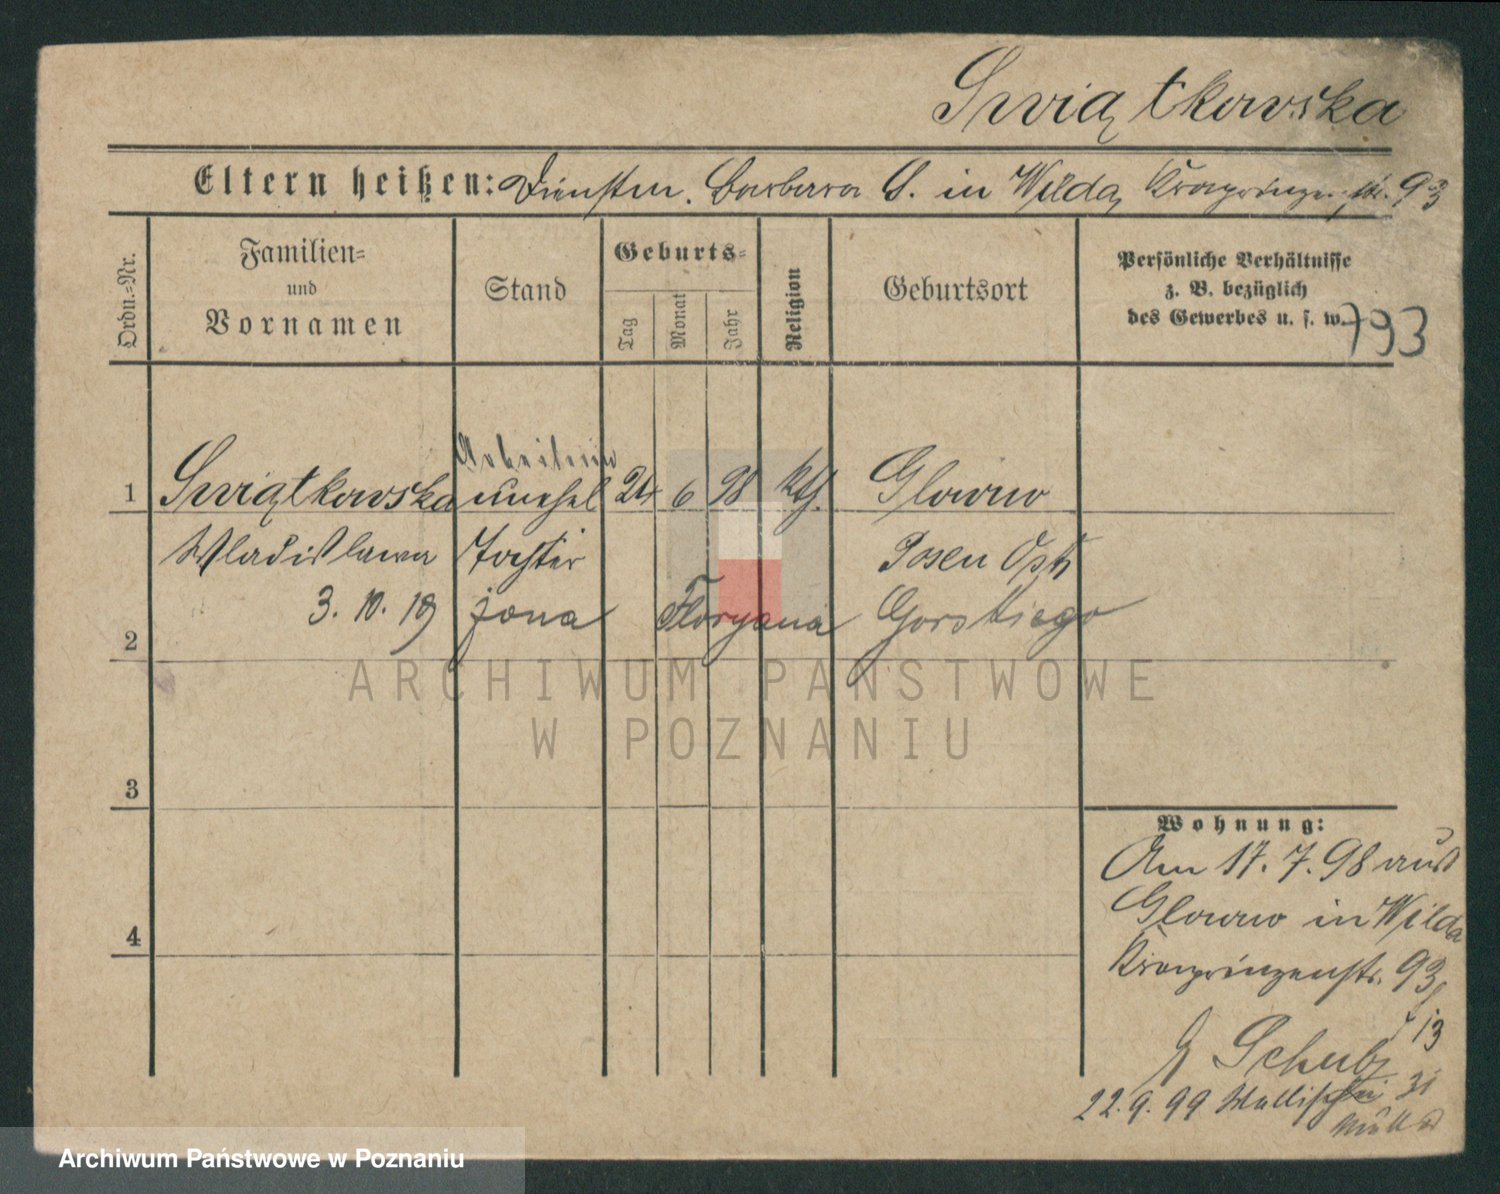 Swiątkowska
Eltern heißen: Dienstm. Barbara S. in Wilda, Kronprinzenstr. 93
Ordn.=Nr.
Familien=
und
Vornamen
Stand
Geburts=
Tag
Monat
Jahr
Religion
Geburtsort
Persönliche Verhältnisse
z. B. bezüglich
des Gewerbes u. s. w.
793
Arbeiterin
1 Swiątkowska unehel 24 6 98 kth. Glowno
Wladislawa Tochter Posen Ost
3. 10. 19 żona Floryana Gorskiego
2
3
4
Wohnung:
Am 17. 7. 98 aus
Glowno in Wilda
Kronprinzenstr. 93
13
Schubz
22. 9. 99 Wallischei 31
ARCHIWUM PAŃSTWOWE
W POZNANIU
Archiwum Państwowe w Poznaniu